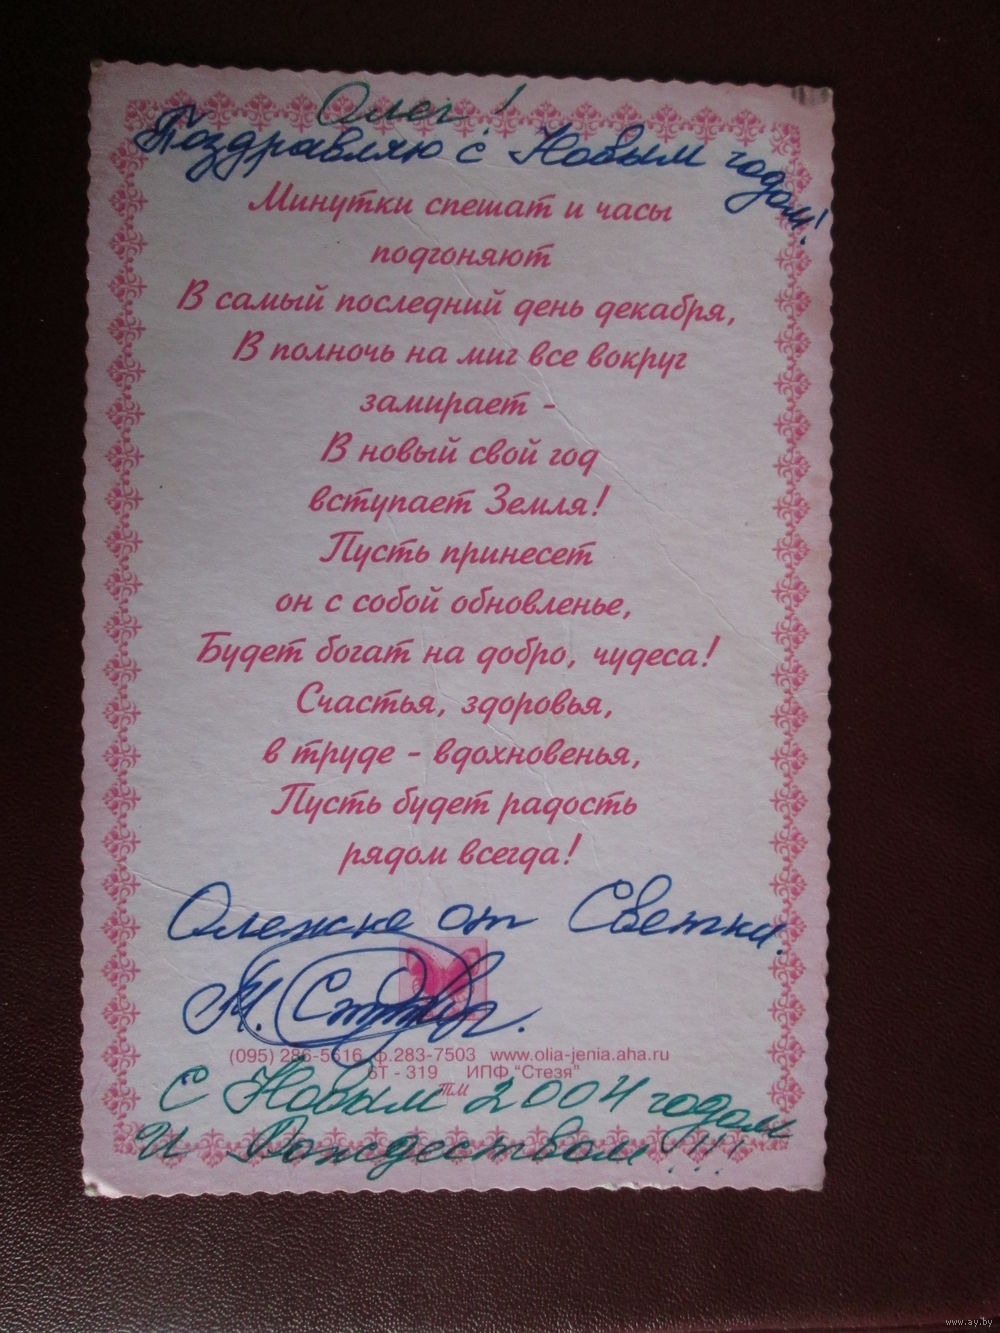 Олег!
Поздравляю с Новым годом!
Минутки спешат и часы
подгоняют
В самый последний день декабря,
В полночь на миг все вокруг
замирает -
В новый свой год
вступает Земля!
Пусть принесет
он с собой обновленье,
Будет богат на добро, чудеса!
Счастья, здоровья,
в труде - вдохновенья,
Пусть будет радость
рядом всегда!
Олежке от Светки.
М.
(095) 286-5616 ф.283-7503 www.olia-jenia.aha.ru
6Т - 319 ИПФ "Стезя"
ТМ
С Новым 2004 годом
и Рождеством!!!
www.ay.by